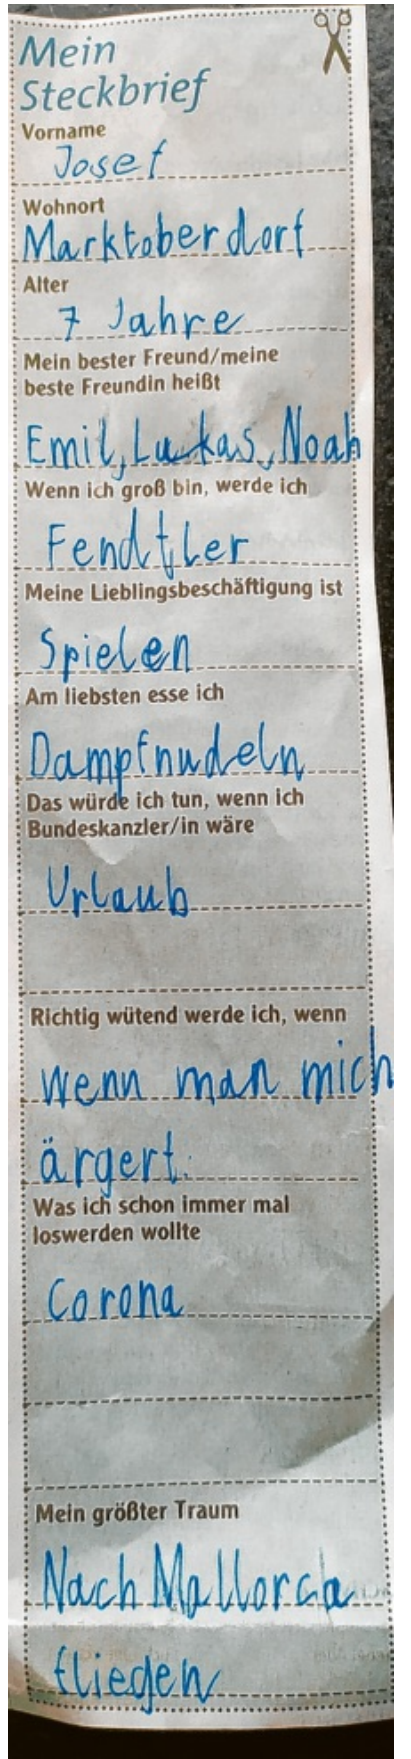 Mein
Steckbrief
Vorname
Josef
Wohnort
Marktoberdorf
Alter
7 Jahre
Mein bester Freund/meine
beste Freundin heißt
Emil, Lukas, Noah
Wenn ich groß bin, werde ich
Fendtler
Meine Lieblingsbeschäftigung ist
Spielen
Am liebsten esse ich
Dampfnudeln
Das würde ich tun, wenn ich
Bundeskanzler/in wäre
Urlaub
Richtig wütend werde ich, wenn
wenn man mich
ärgert.
Was ich schon immer mal
loswerden wollte
Corona
Mein größter Traum
Nach Mallorca
fliegen